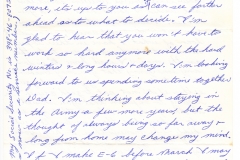 more, its up to you so I can see farther
ahead as to what to decide. I'm
glad to hear that you won't have to
work so hard anymore with the hard
winters & long hours & days. I'm looking
forward to us spending some time together
Wed. I'm thinking about staying in
the Army a few more years but the
thought of always being so far away &
long from home may change my mind.
If I make E-6 before March I may
my Social Security No. is